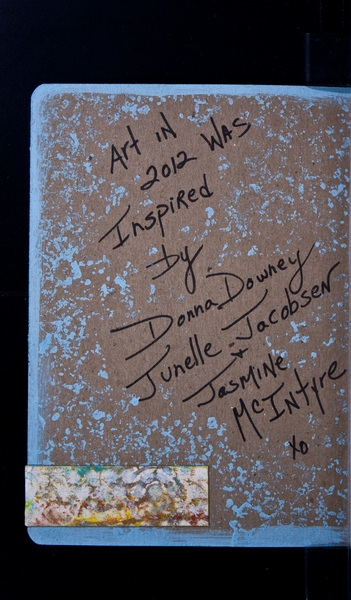 Art iN
2012 WAS
InspiRed
by
Donna Downey
Junelle Jacobsen
+
JasMiNe
McIntyre
xo